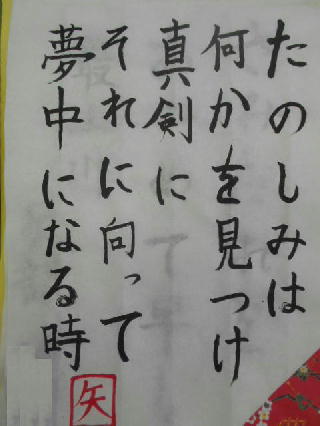 たのしみは
何かを見つけ
真剣に
それに向って
夢中になる時
矢